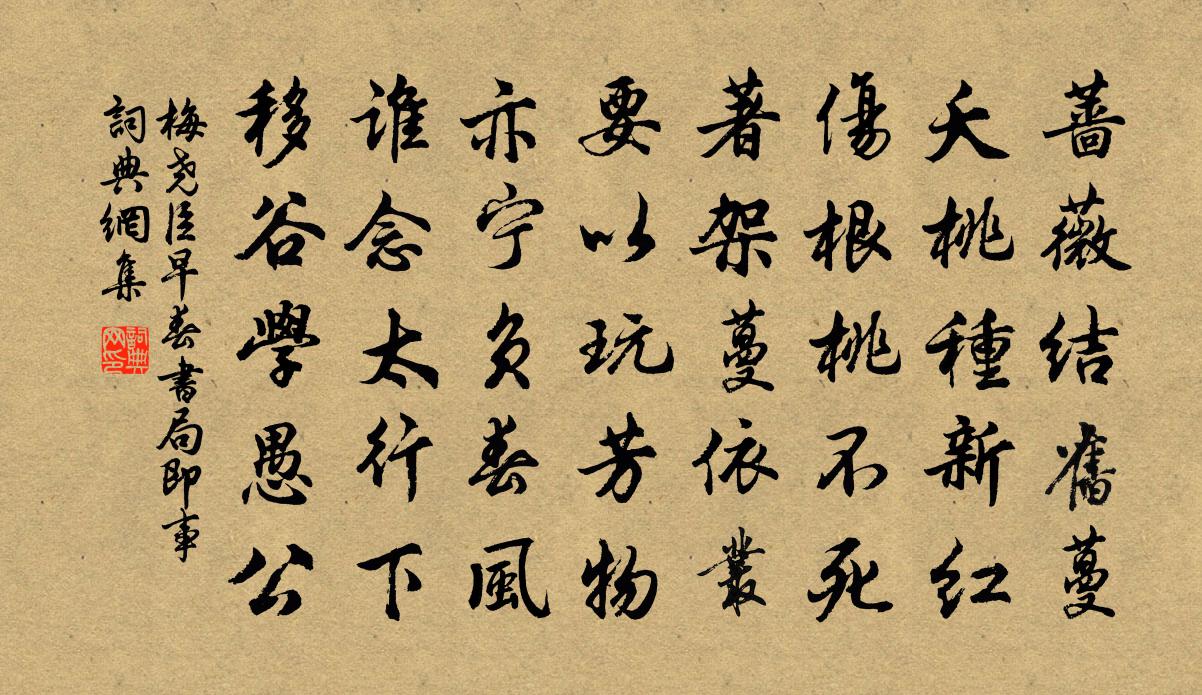 薔薇结舊蔓
夭桃種新红
傷根桃不死
著架蔓依叢
要以玩芳物
亦宁負春風
谁念太行下
移谷學愚公
梅尧臣早春書局即事
詞典網集
詞典网印